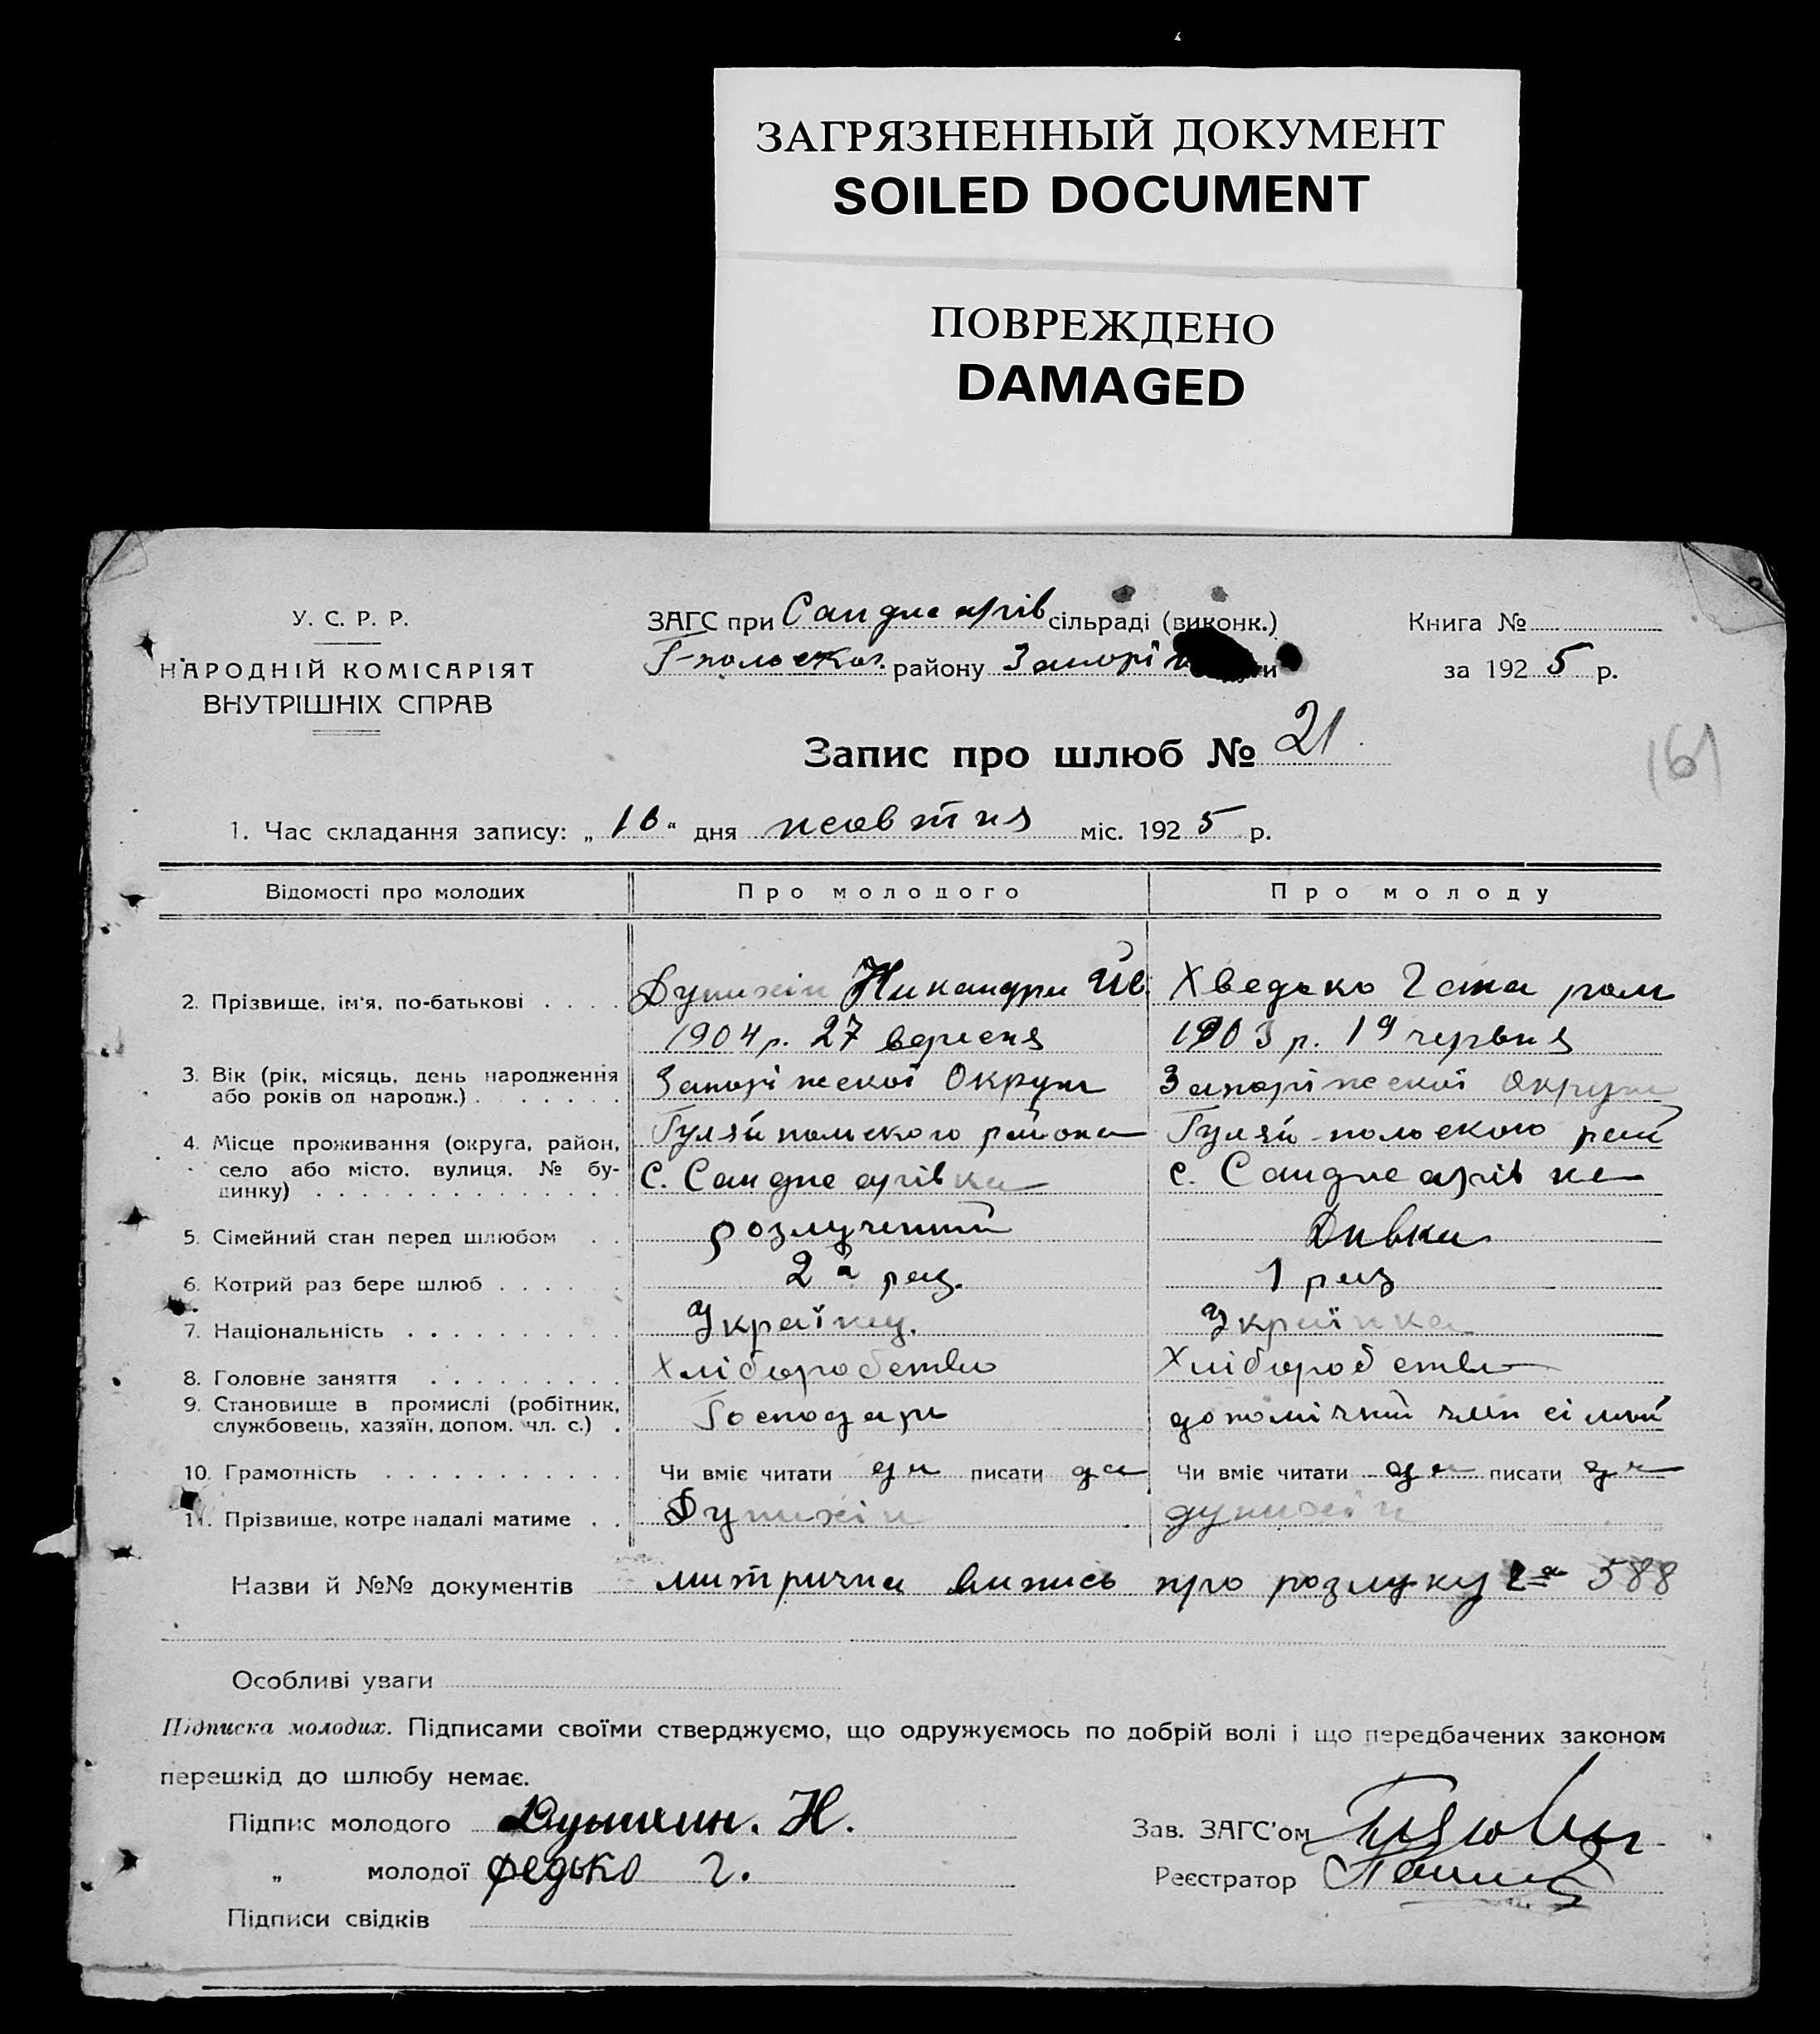 ЗАГРЯЗНЕННЫЙ ДОКУМЕНТ
SOILED DOCUMENT
ПОВРЕЖДЕНО
DAMAGED
У. С. Р. Р.
НАРОДНІЙ КОМІСАРІЯТ
ВНУТРІШНІХ СПРАВ
ЗАГС при сільраді (виконк.)
Г-польськог. району Запоріж
Книга №
за 1925 р.
Запис про шлюб № 21
161
1. Час складання запису: „16" дня жовтня міс. 1925 р.
Відомості про молодих Про молодого Про молоду
2. Прізвище, ім'я, по-батькові Никандри Ів. Хведько Гата ром
1904 р. 27 вересня 1903 р. 19 червня
3. Вік (рік, місяць, день народження
або років од народж.) Запоріжскої Округи Запоріжскої Округи
4. Місце проживання (округа, район, Гуляйпольского района Гуляй-польского рай
село або місто, вулиця, № бу-
динку) с. с.
5. Сімейний стан перед шлюбом розлучений Дивка
6. Котрий раз бере шлюб 2й раз. 1 раз
7. Національність Українец. Українка
8. Головне заняття Хліборобство Хлібороб ство
9. Становище в промислі (робітник,
службовець, хазяїн, допом. чл. с.) Господарь допомічний член сімьї
10. Грамотність Чи вміє читати да писати да Чи вміє читати да писати да
11. Прізвище, котре надалі матиме
Назви й №№ документів митрична випись про розлуку 588
Особливі уваги
Підписка молодих. Підписами своїми стверджуємо, що одружуємось по добрій волі і що передбачених законом
перешкід до шлюбу немає.
Підпис молодого Н.
„ молодої Федько Г.
Підписи свідків
Зав. ЗАГС'ом
Реєстратор